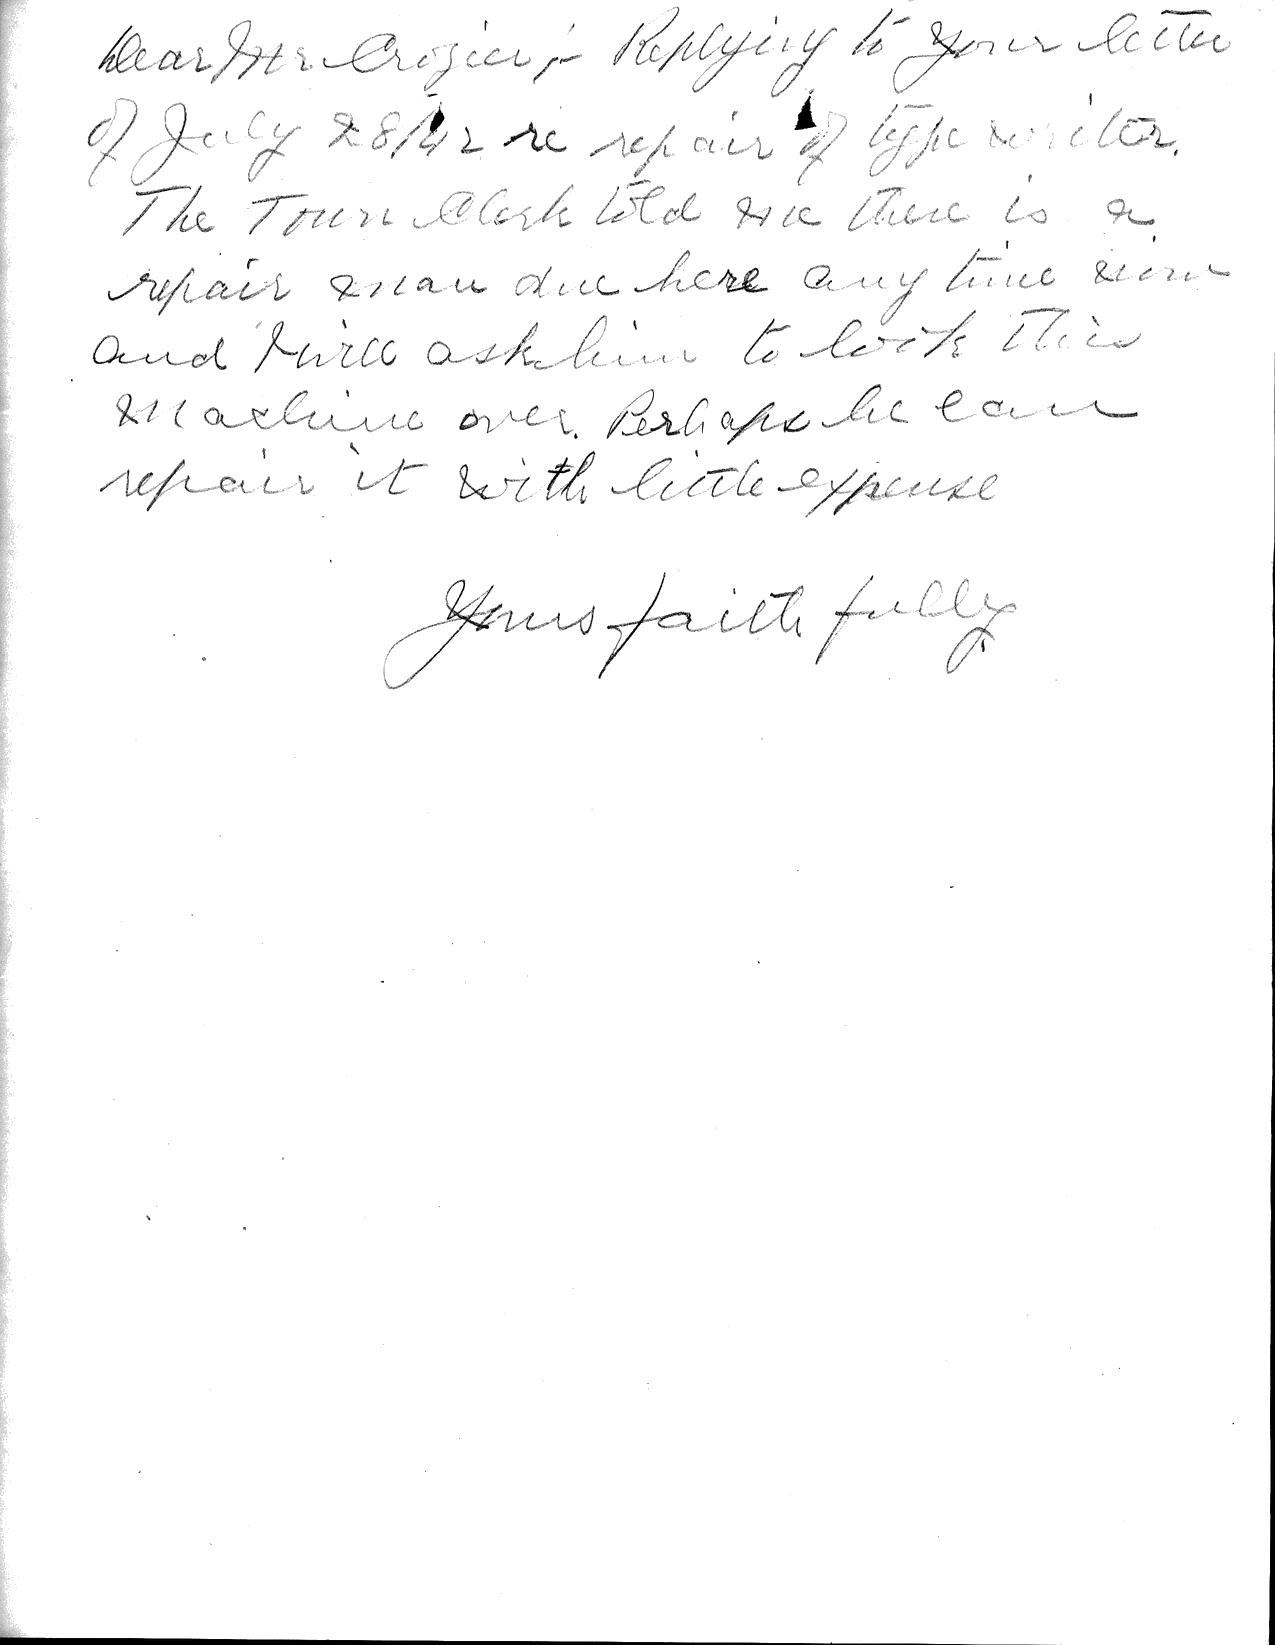 Dear Mr Crozier;- Replying to your letter
of July 28/42 re repair of typewriter.
The Town Clerk told me there is a
repair man due here any time now
and I will ask him to look this
machine over. Perhaps he can
repair it with little expense
Yours faithfully